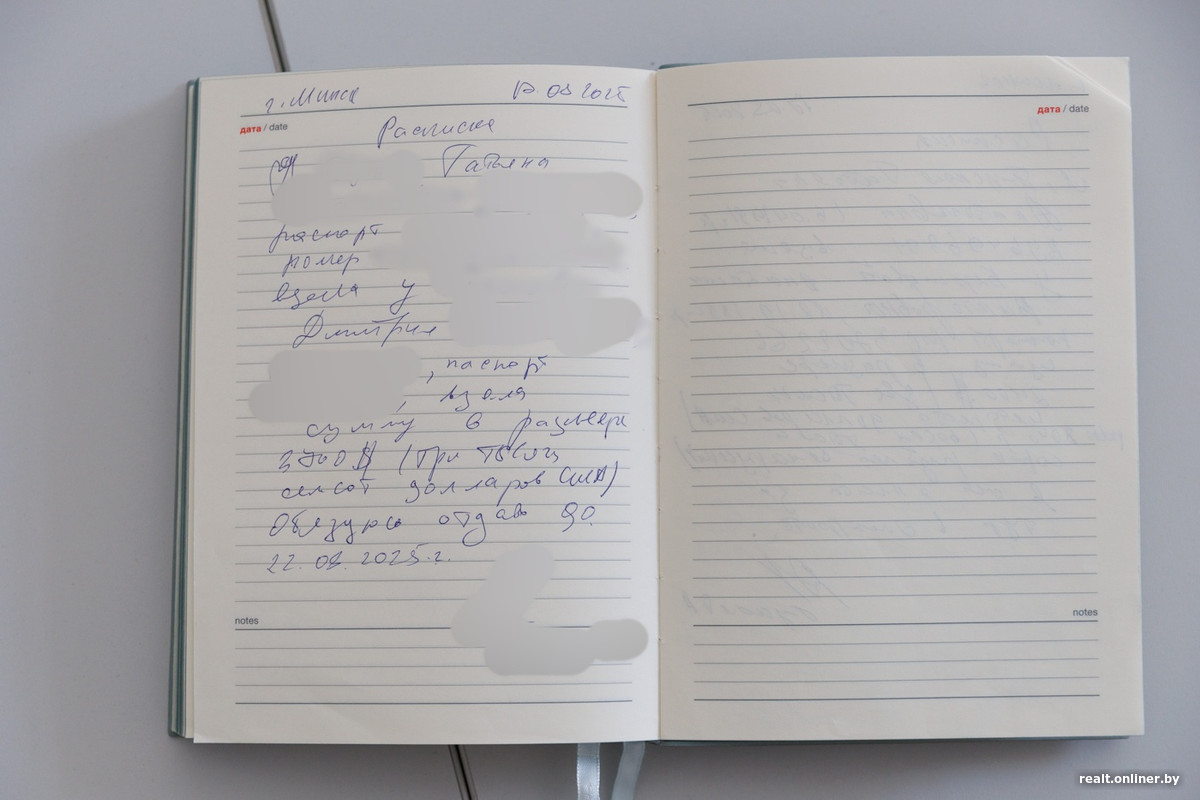 г. Минск
дата / date
Расписка
Я Татьяна
паспорт
номер
взяла у
Дмитрия
, паспорт
, взяла
сумму в размере
3700$ (три тысяч
семсот долларов США)
Обязуюсь отдать до
22.08.2025 г.
notes
дата / date
notes
realt.onliner.by